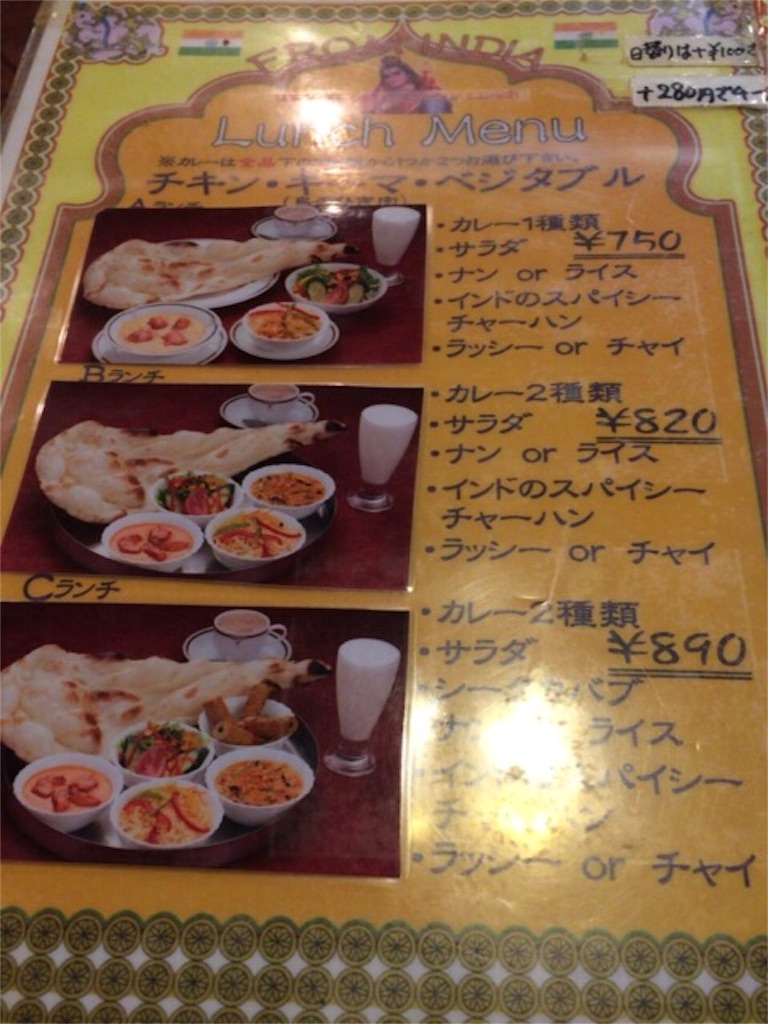 FROM INDIA
日替りは+¥100
+280円で
Lunch Menu
※カレーは全品下の から1つか2つお選び下さい。
チキン・キーマ・ベジタブル
Aランチ
・カレー1種類
・サラダ ¥750
・ナン or ライス
・インドのスパイシー
チャーハン
・ラッシー or チャイ
Bランチ
・カレー2種類
・サラダ ¥820
・ナン or ライス
・インドのスパイシー
チャーハン
・ラッシー or チャイ
Cランチ
・カレー2種類
・サラダ ¥890
・シークカバブ
ライス
・インド スパイシー
チ ン
・ラッシー or チャイ